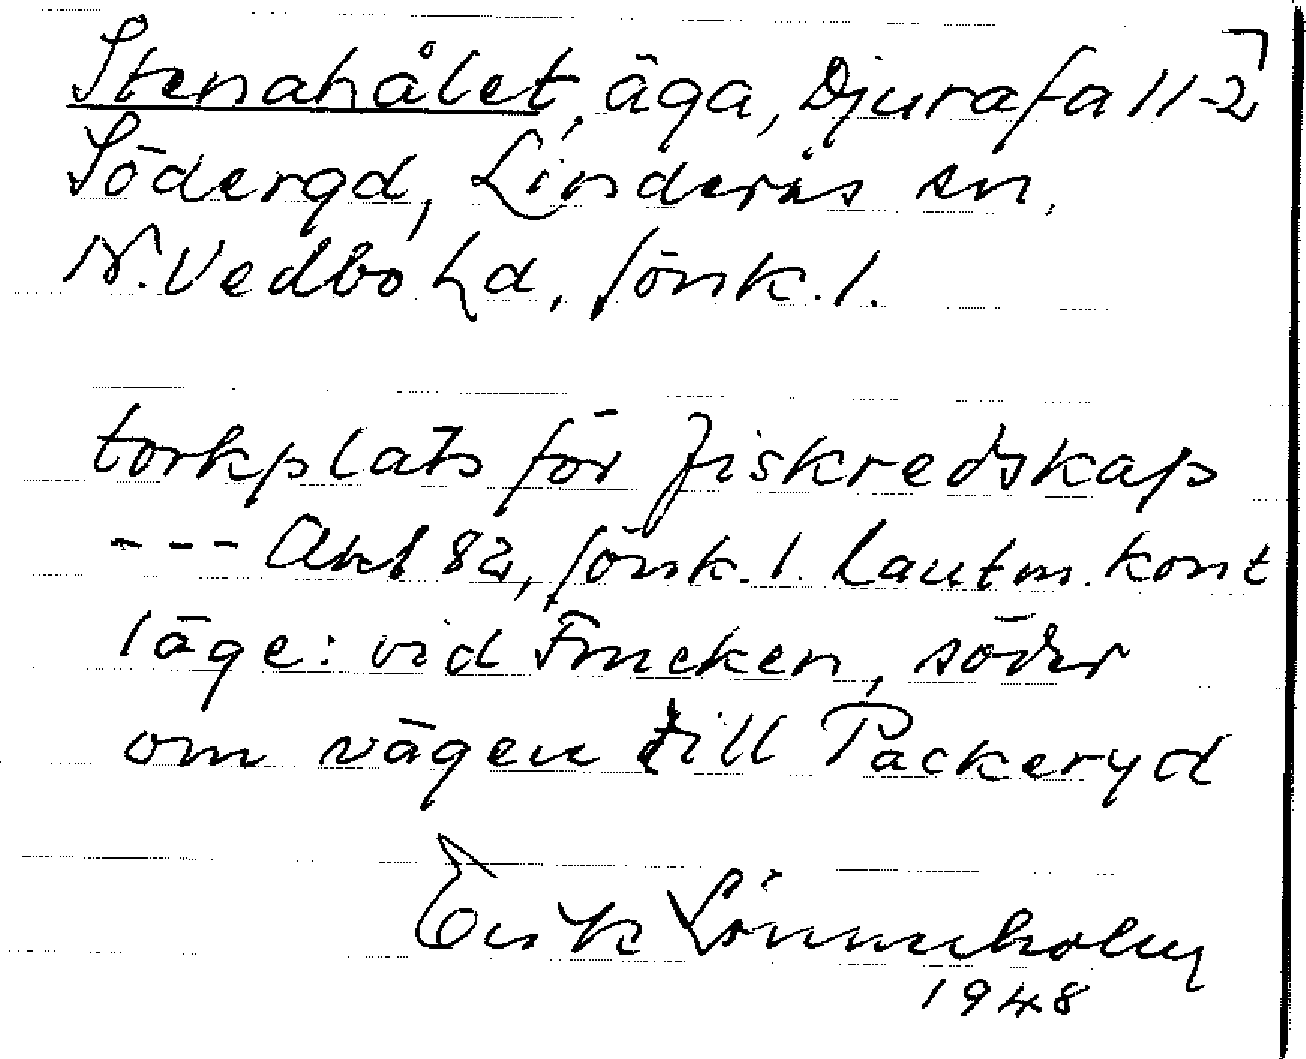 Stenahålet, äga, Djurafall 2
Södergd, Linderås sn.
N. Vedbo hd, Jönk. l.
torkplats för fiskredskap
--- Akt 82, Jönk. l. Lantm. kont
läge: vid Frucken, söder
om vägen till Packeryd
Erik Lönnerholm
1948